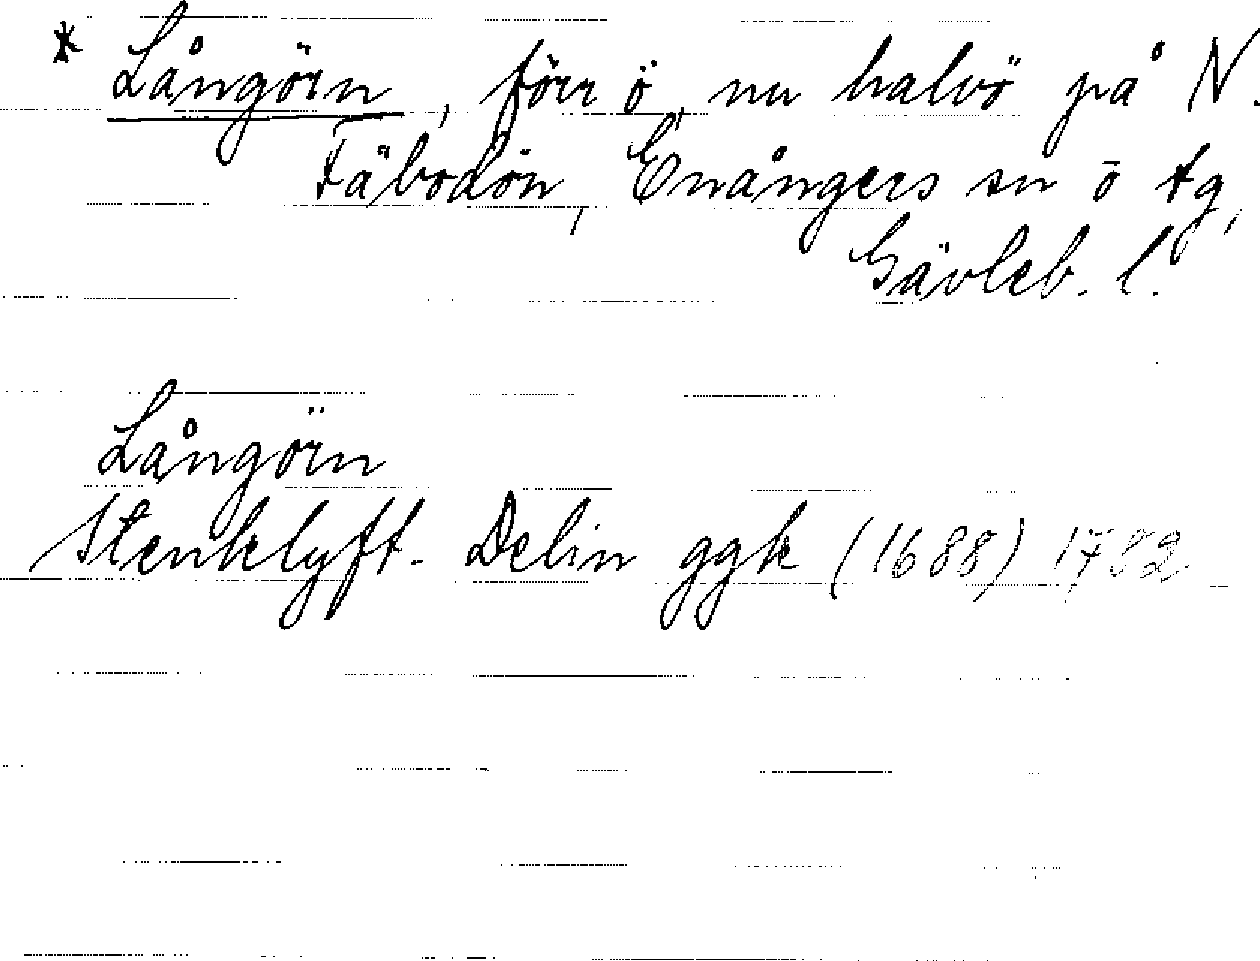 * Långörn, förr ö, nu halvö på N.
Fäbodön, Enångers sn ö tg,
Gävleb. l.
Långörn
Stenklyft. Delin ggk (1688) 1782